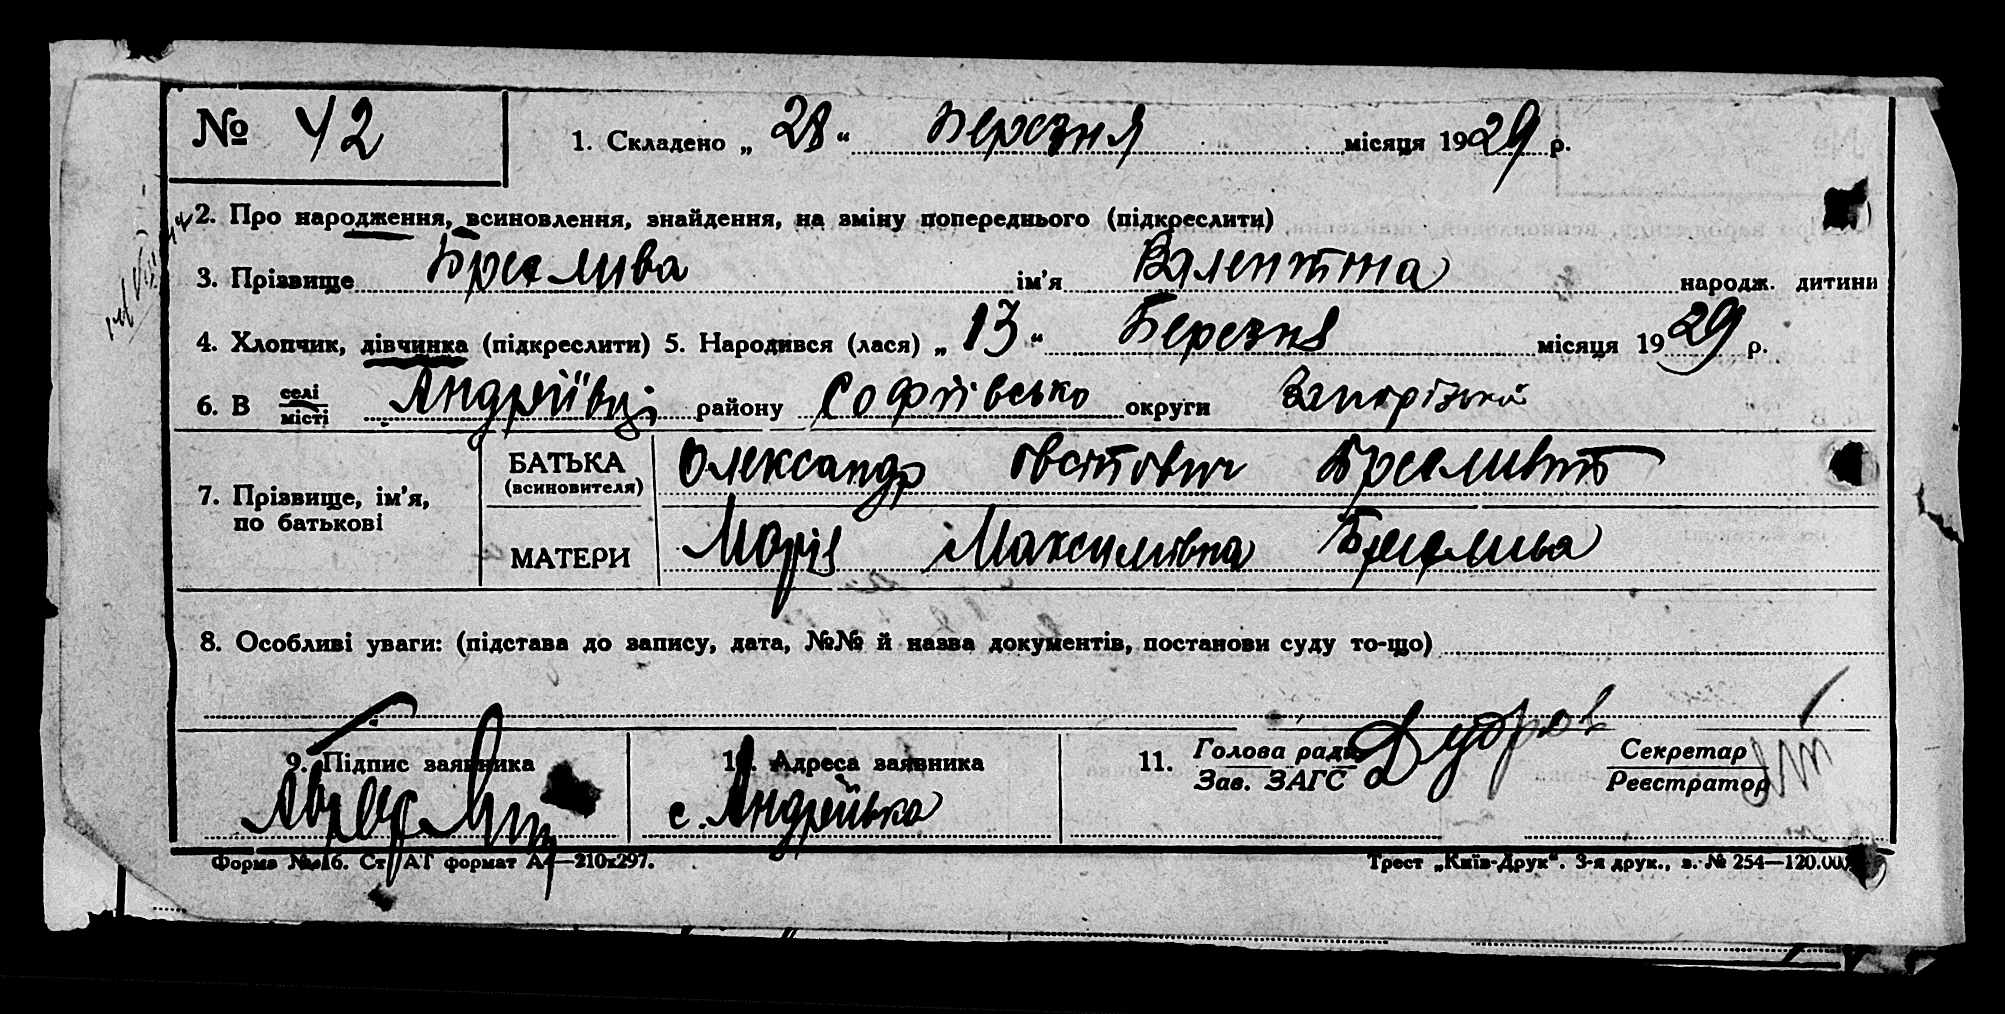 № 42
1. Складено „ 28 “ Березня місяця 1929 р.
2. Про народження, всиновлення, знайдення, на зміну попереднього (підкреслити)
3. Прізвище ім'я Валентина народж. дитини
4. Хлопчик, дівчинка (підкреслити) 5. Народився (лася) „ 13 “ Березня місяця 1929 р.
6. В селі місті Андреївці району Софиівсько округи Запорізькой
7. Прізвище, ім'я, по батькові
БАТЬКА (всиновителя) Олександр
МАТЕРИ Марія Максимівна
8. Особливі уваги: (підстава до запису, дата, №№ й назва документів, постанови суду то-що)
9. Підпис заявника
10. Адреса заявника
с. Андреївка
11. Голова ради Зав. ЗАГС
Секретар Реєстратор
Форма № 16. Ст. АГ формат А4—210x297.
Трест „Київ-Друк“. 3-я друк., в. № 254—120.00